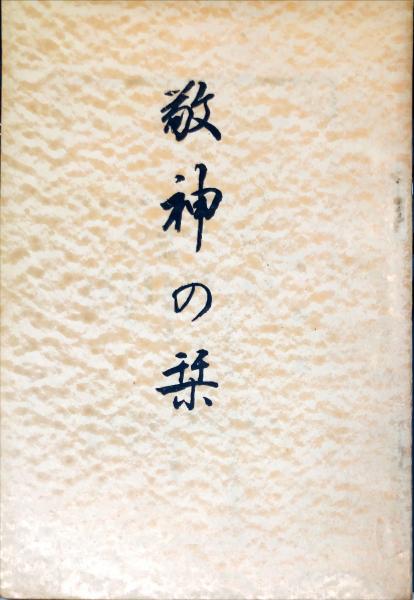 敬神の栞